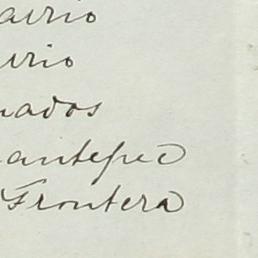 airio
urio
nados
antepec
Frontera